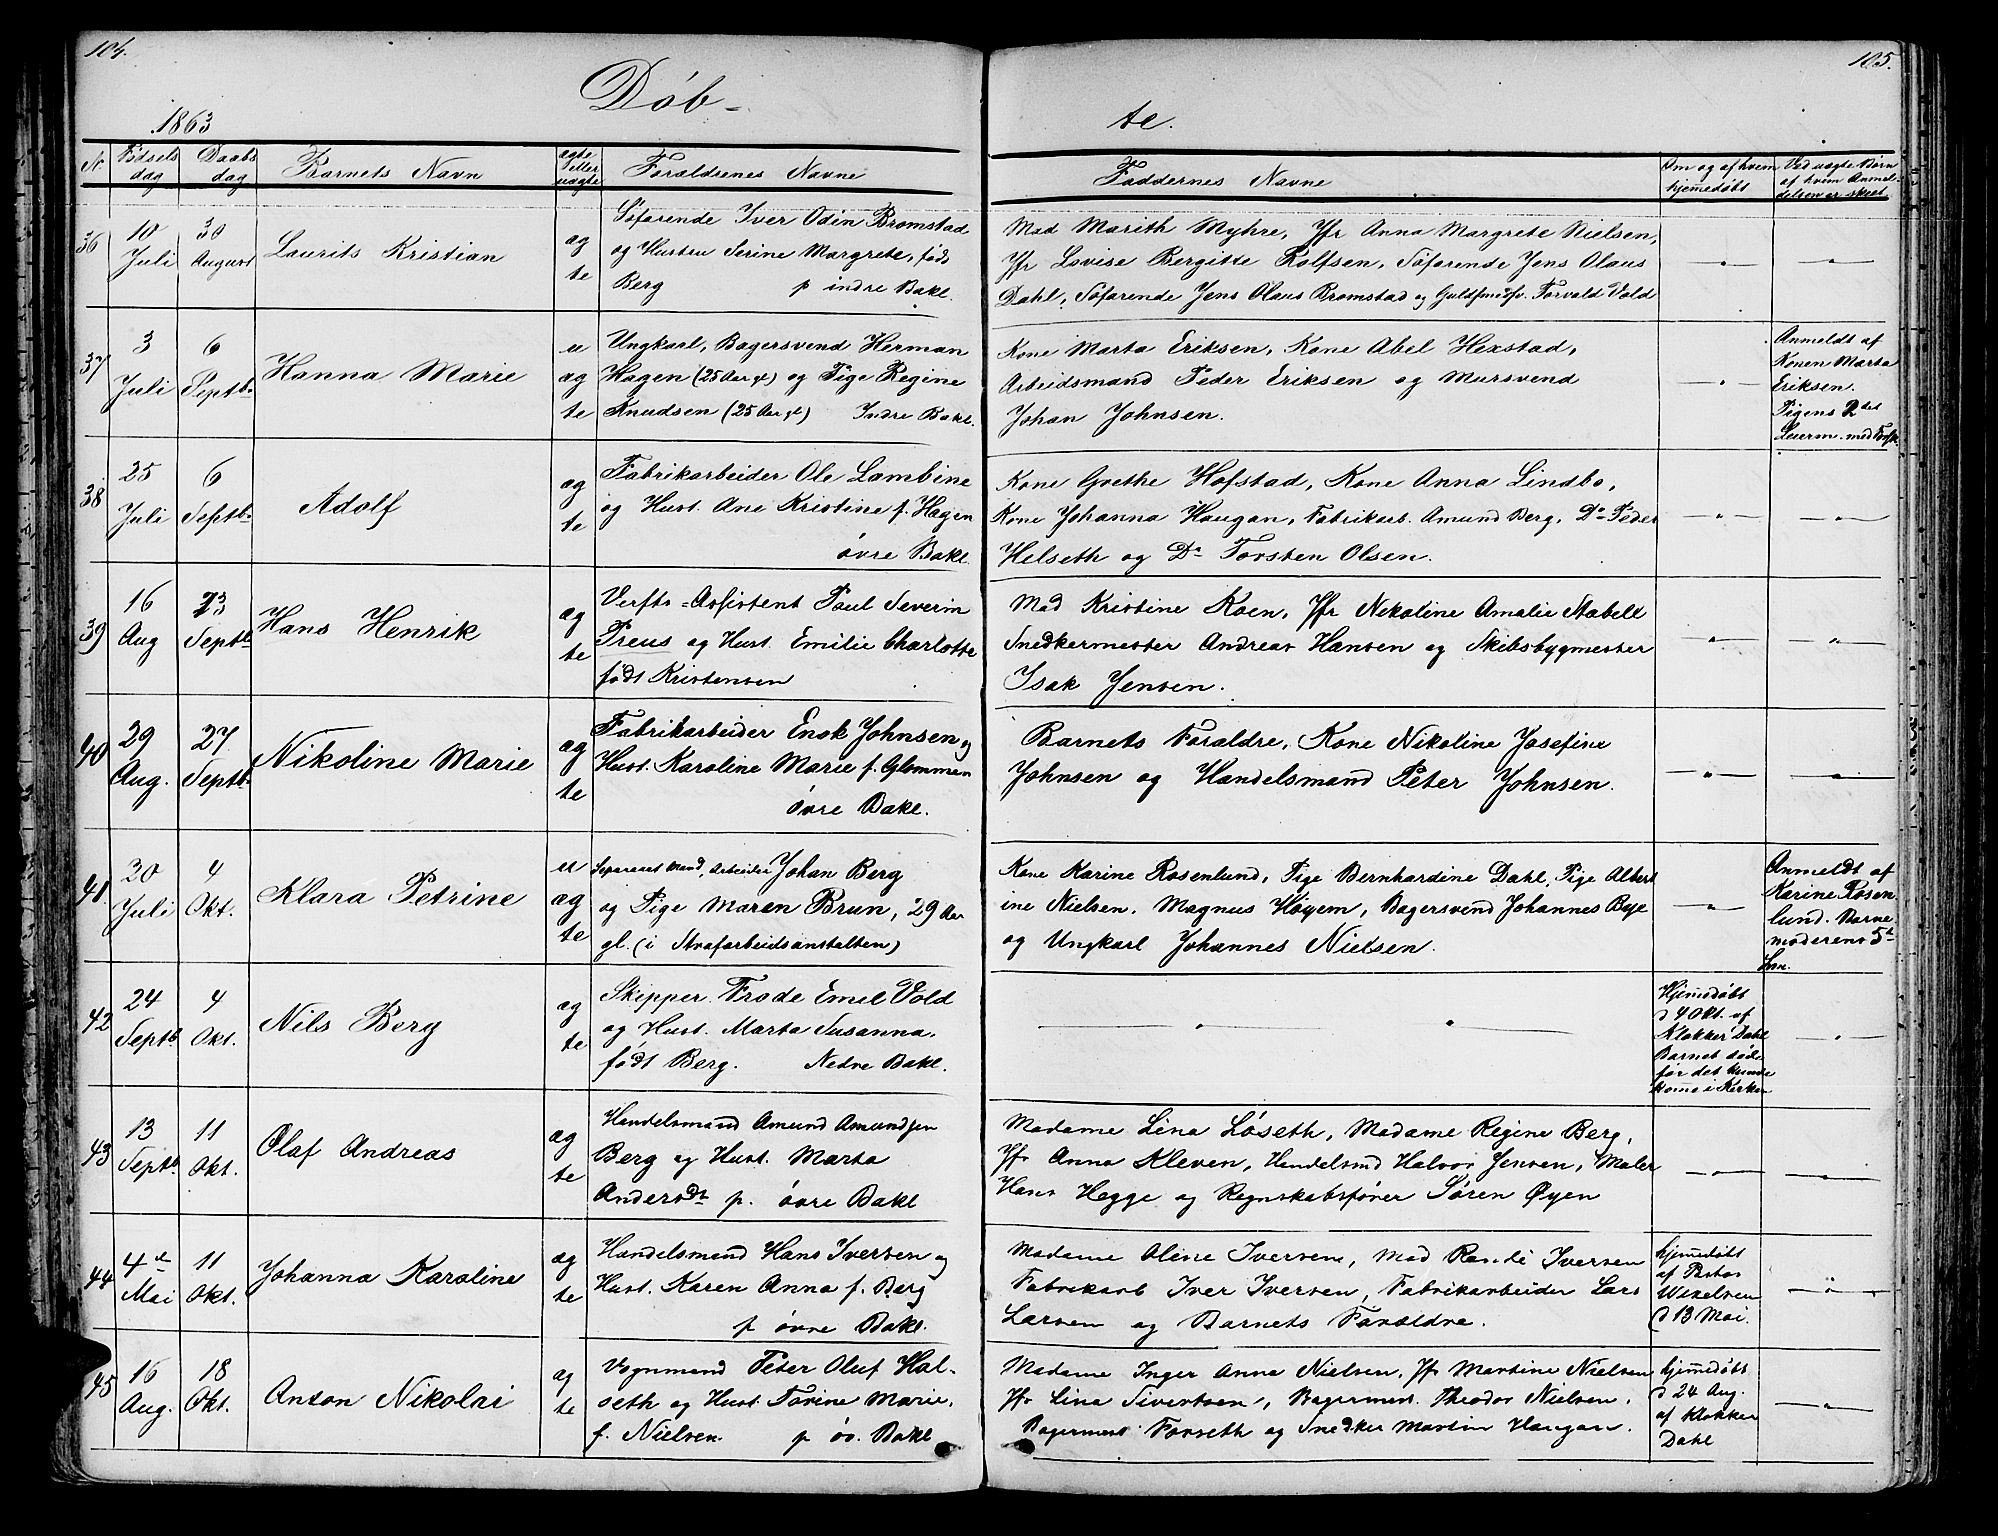 104.
105.
Døb-
te.
1863
N.
Fødsels
dag
Daabs
dag
Barnets Navn
ægte
eller
uægte
Forældrenes Navne
Faddernes Navne
Om og af hvem
hjemedøbt
Ved uægte Børn
af hvem Anmel-
delsen er skeet
36
10
Juli
30
August
Laurits Kristian
æg
te
Søfarende Iver Odin Bromstad
og Hustru Serine Margrete, født
Berg p indre Bakl.
Mad Marith Myhre, Jfr Anna Margrete Nielsen,
Jfr Lovise Bergitte Rolfsen, Søfarende Jens Olaus
Dahl, Søfarende Jens Olaus Bromstad og Guldsmedsv. Torvald Vold
37
3
Juli
6
Septb.
Hanna Marie
u
æg
te
Ungkarl, Bagersvend Herman
Hagen (25 Aar gl) og Pige Regine
Knudsen (25 Aar gl) Indre Bakl.
Kone Marta Eriksen, Kone Abel Hexstad,
Arbeidsmand Peder Eriksen og Mursvend
Johan Johnsen.
Anmeldt af
Konen Marta
Eriksen.
Pigens 2det
Leierm. med Forsk.
38
25
Juli
6
Septb.
Adolf
æg
te
Fabrikarbeider Ole Lambine
og Hust. Ane Kristine f. Hagen
øvre Bakl.
Kone Grethe Hofstad, Kone Anna Lindbo,
Kone Johanna Haugan, Fabrikarb. Amund Berg, Do Peder
Helseth og Do Torsten Olsen.
39
16
Aug
23
Septb.
Hans Henrik
æg
te
Verfts-Assistent Paul Severin
Preus og Hust. Emilie Charlotte
født Kristensen
Mad Kristine Koen, Jfr Nekoline Amalie Stabell
Snedkermester Andreas Hansen og Skibsbygmester
Isak Jensen.
40
29
Aug.
27
Septb.
Nikoline Marie
æg
te
Fabrikarbeider Enok Johnsen og
Hust. Karoline Marie f. Glommen
øvre Bakl.
Barnets Forældre, Kone Nikoline Josefine
Johnsen og Handelsmand Peter Johnsen.
41
20
Juli
4
Okt.
Klara Petrine
u
æg
te
Separeret Mand, Arbeider Johan Berg
og Pige Maren Brun, 29 Aar
gl. (i Strafarbeidsanstalten)
Kone Karine Rosenlund, Pige Bernhardine Dahl, Pige Albert
ine Nielsen, Magnus Høyem, Bagersvend Johannes Bye
og Ungkarl Johannes Nielsen.
Anmeldt af
Karine Rosen
lund. Barne
moderens 5t
Lm.
42
24
Septb
4
Okt.
Nils Berg
æg
te
Skipper Frode Emil Vold
og Hust. Marta Susanna,
født Berg. Nedre Bakl.
Hjemedøbt
d 4 Okt. af
Klokker Dahl
Barnet døde
før det kunde
komme i Kirken
43
13
Septb.
11
Okt.
Olaf Andreas
æg
te
Handelsmand Amund Amundsen
Berg og Hust. Marta
Andersdt p. øvre Bakl
Madame Lina Løseth, Madame Regine Berg,
Jfr Anna Kleven, Handelsmd Halvor Jensen, Maler
Hans Hegge og Regnskabsfører Søren Øyen
44
4de
Mai
11
Okt.
Johanna Karoline
æg
te
Handelsmand Hans Iversen og
Hust. Karen Anna f. Berg
p øvre Bakl.
Madame Oline Iversen, Mad Randi Iversen
Fabrikarb Iver Iversen, Fabrikarbeider Lars
Larsen og Barnets Forældre.
hjemedøbt
af Pastor
Wexelsen
d 13 Mai.
45
16
Aug.
18
Okt.
Anton Nikolai
æg
te
Vognmand Peter Oluf Hal-
seth og Hust. Torine Marie,
f. Nielsen. p øv. Bakl
Madame Inger Anna Nielsen, Jfr Martine Nielsen
Jfr Lina Sivertsen, Bagermest. Theodor Nielsen,
Bagermest Forseth og Snedker Martin Haugan.
hjemedøbt
d 24 Aug.
af Klokker
Dahl